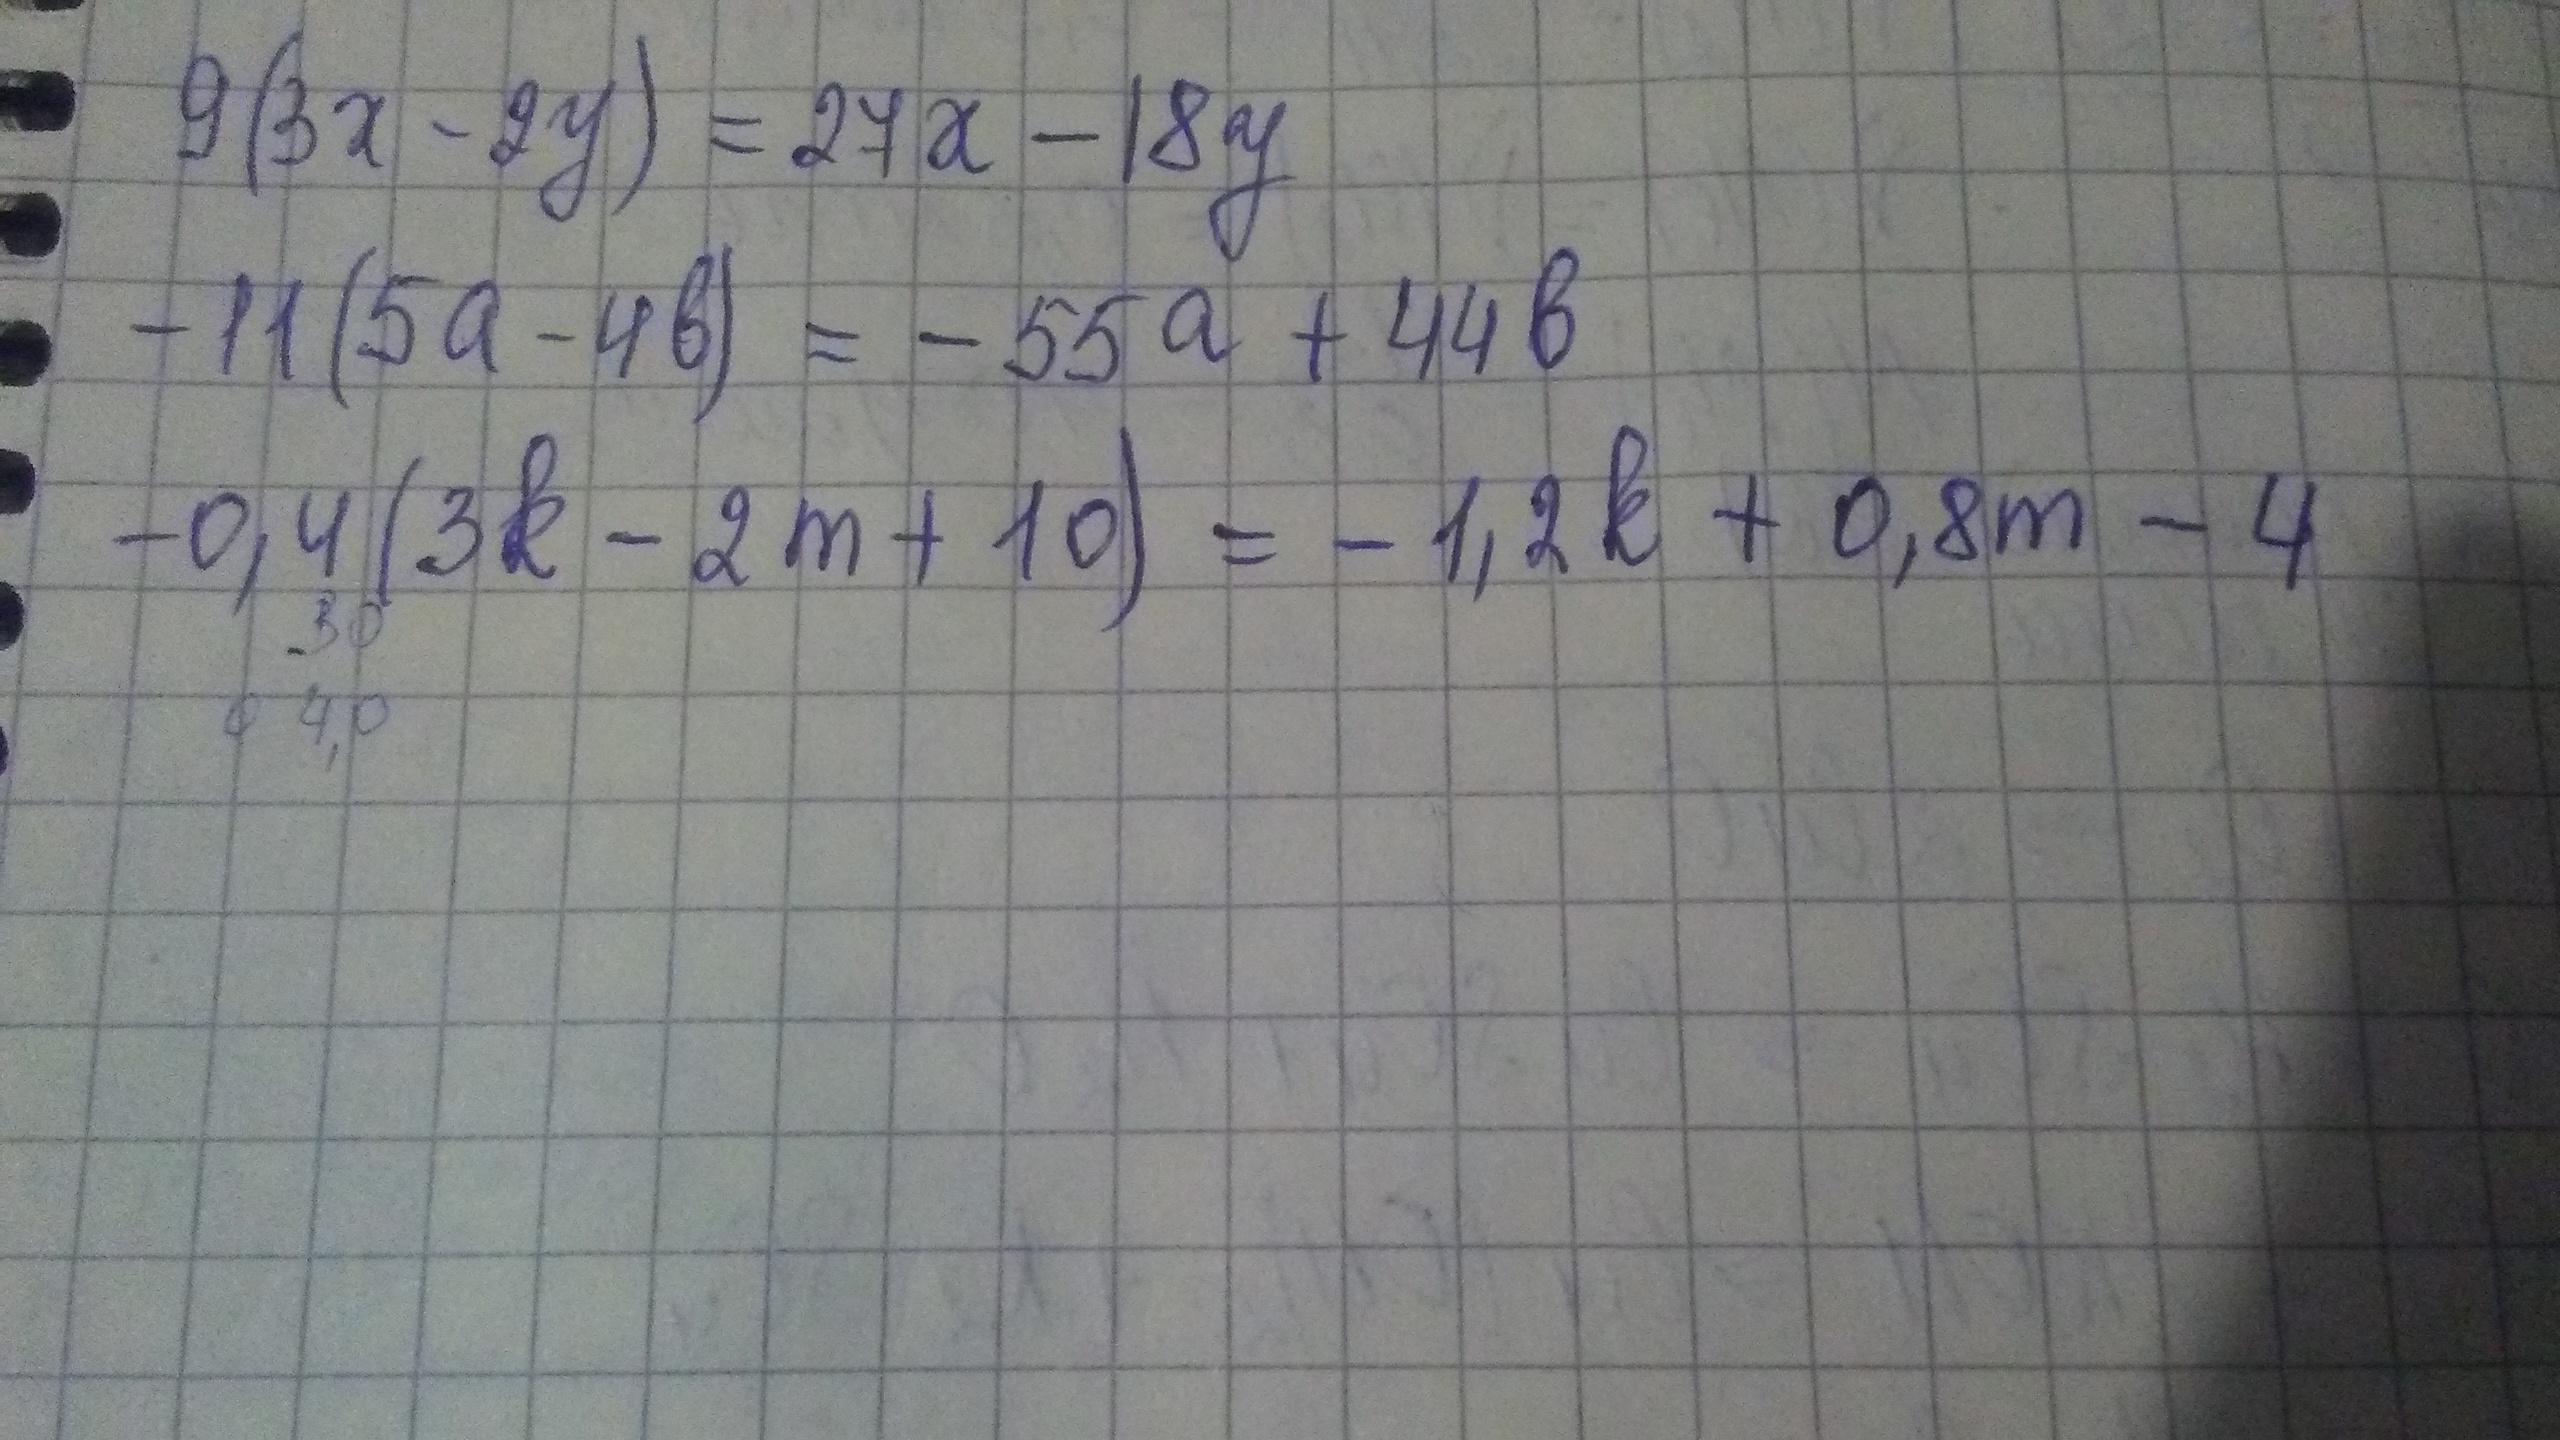 9(3x - 2y) = 27x - 18y
-11(5a - 4b) = -55a + 44b
-0,4(3k - 2m + 10) = -1,2k + 0,8m - 4
30
4,0